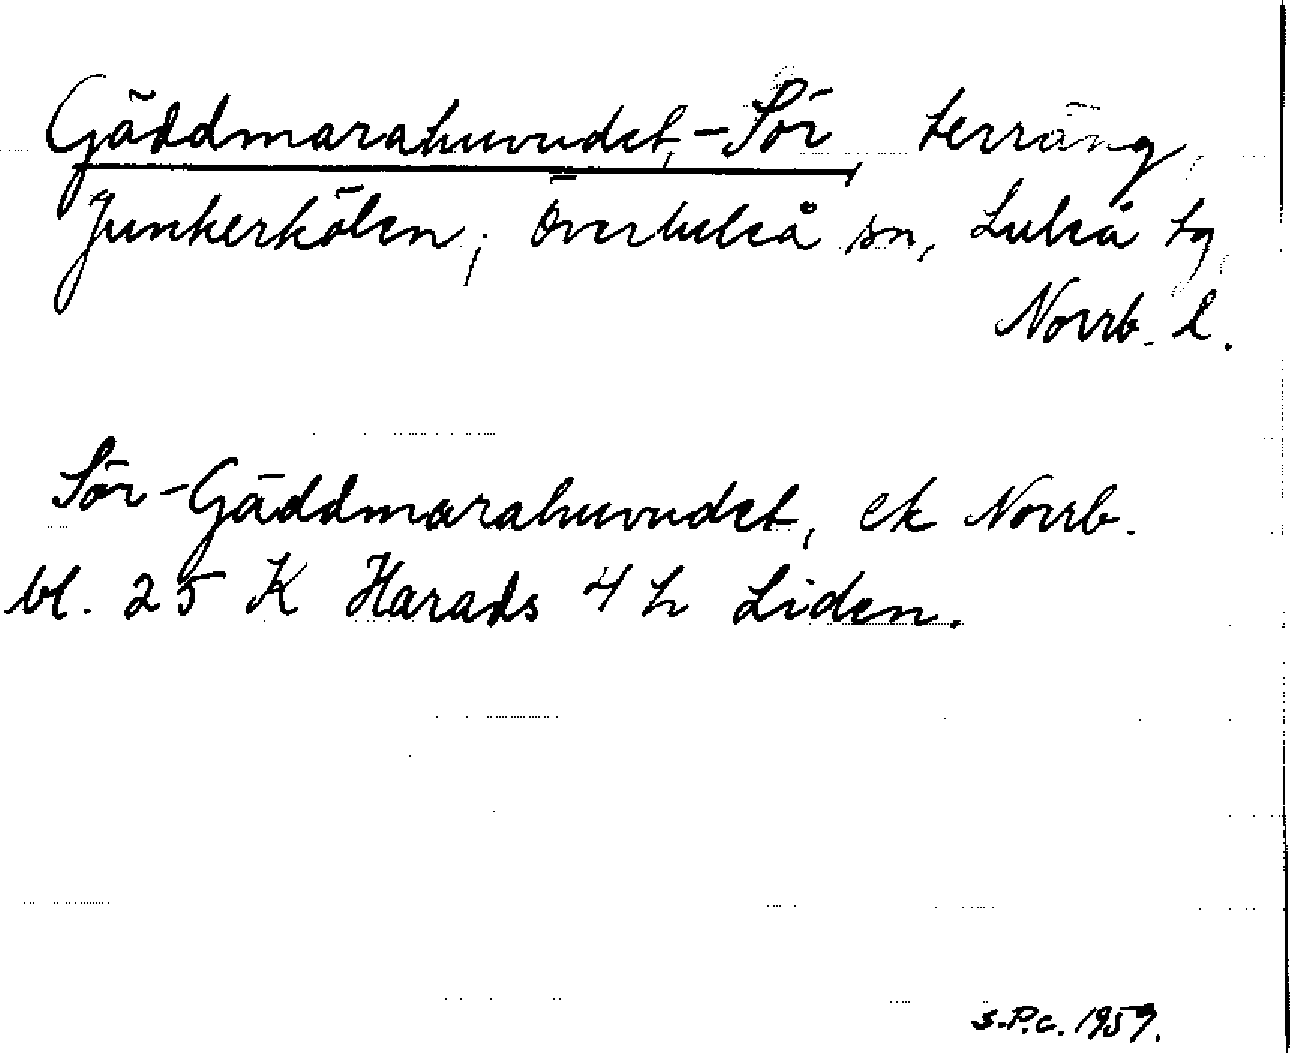 Gäddmarahuvudet, -Sör terräng,
Junkerkölen, Överluleå sn, Luleå tg,
Norrb. l.
Sör-Gäddmarahuvudet, ek Norrb.
bl. 25 K Harads 4 h Liden.
s.P.c. 1959.